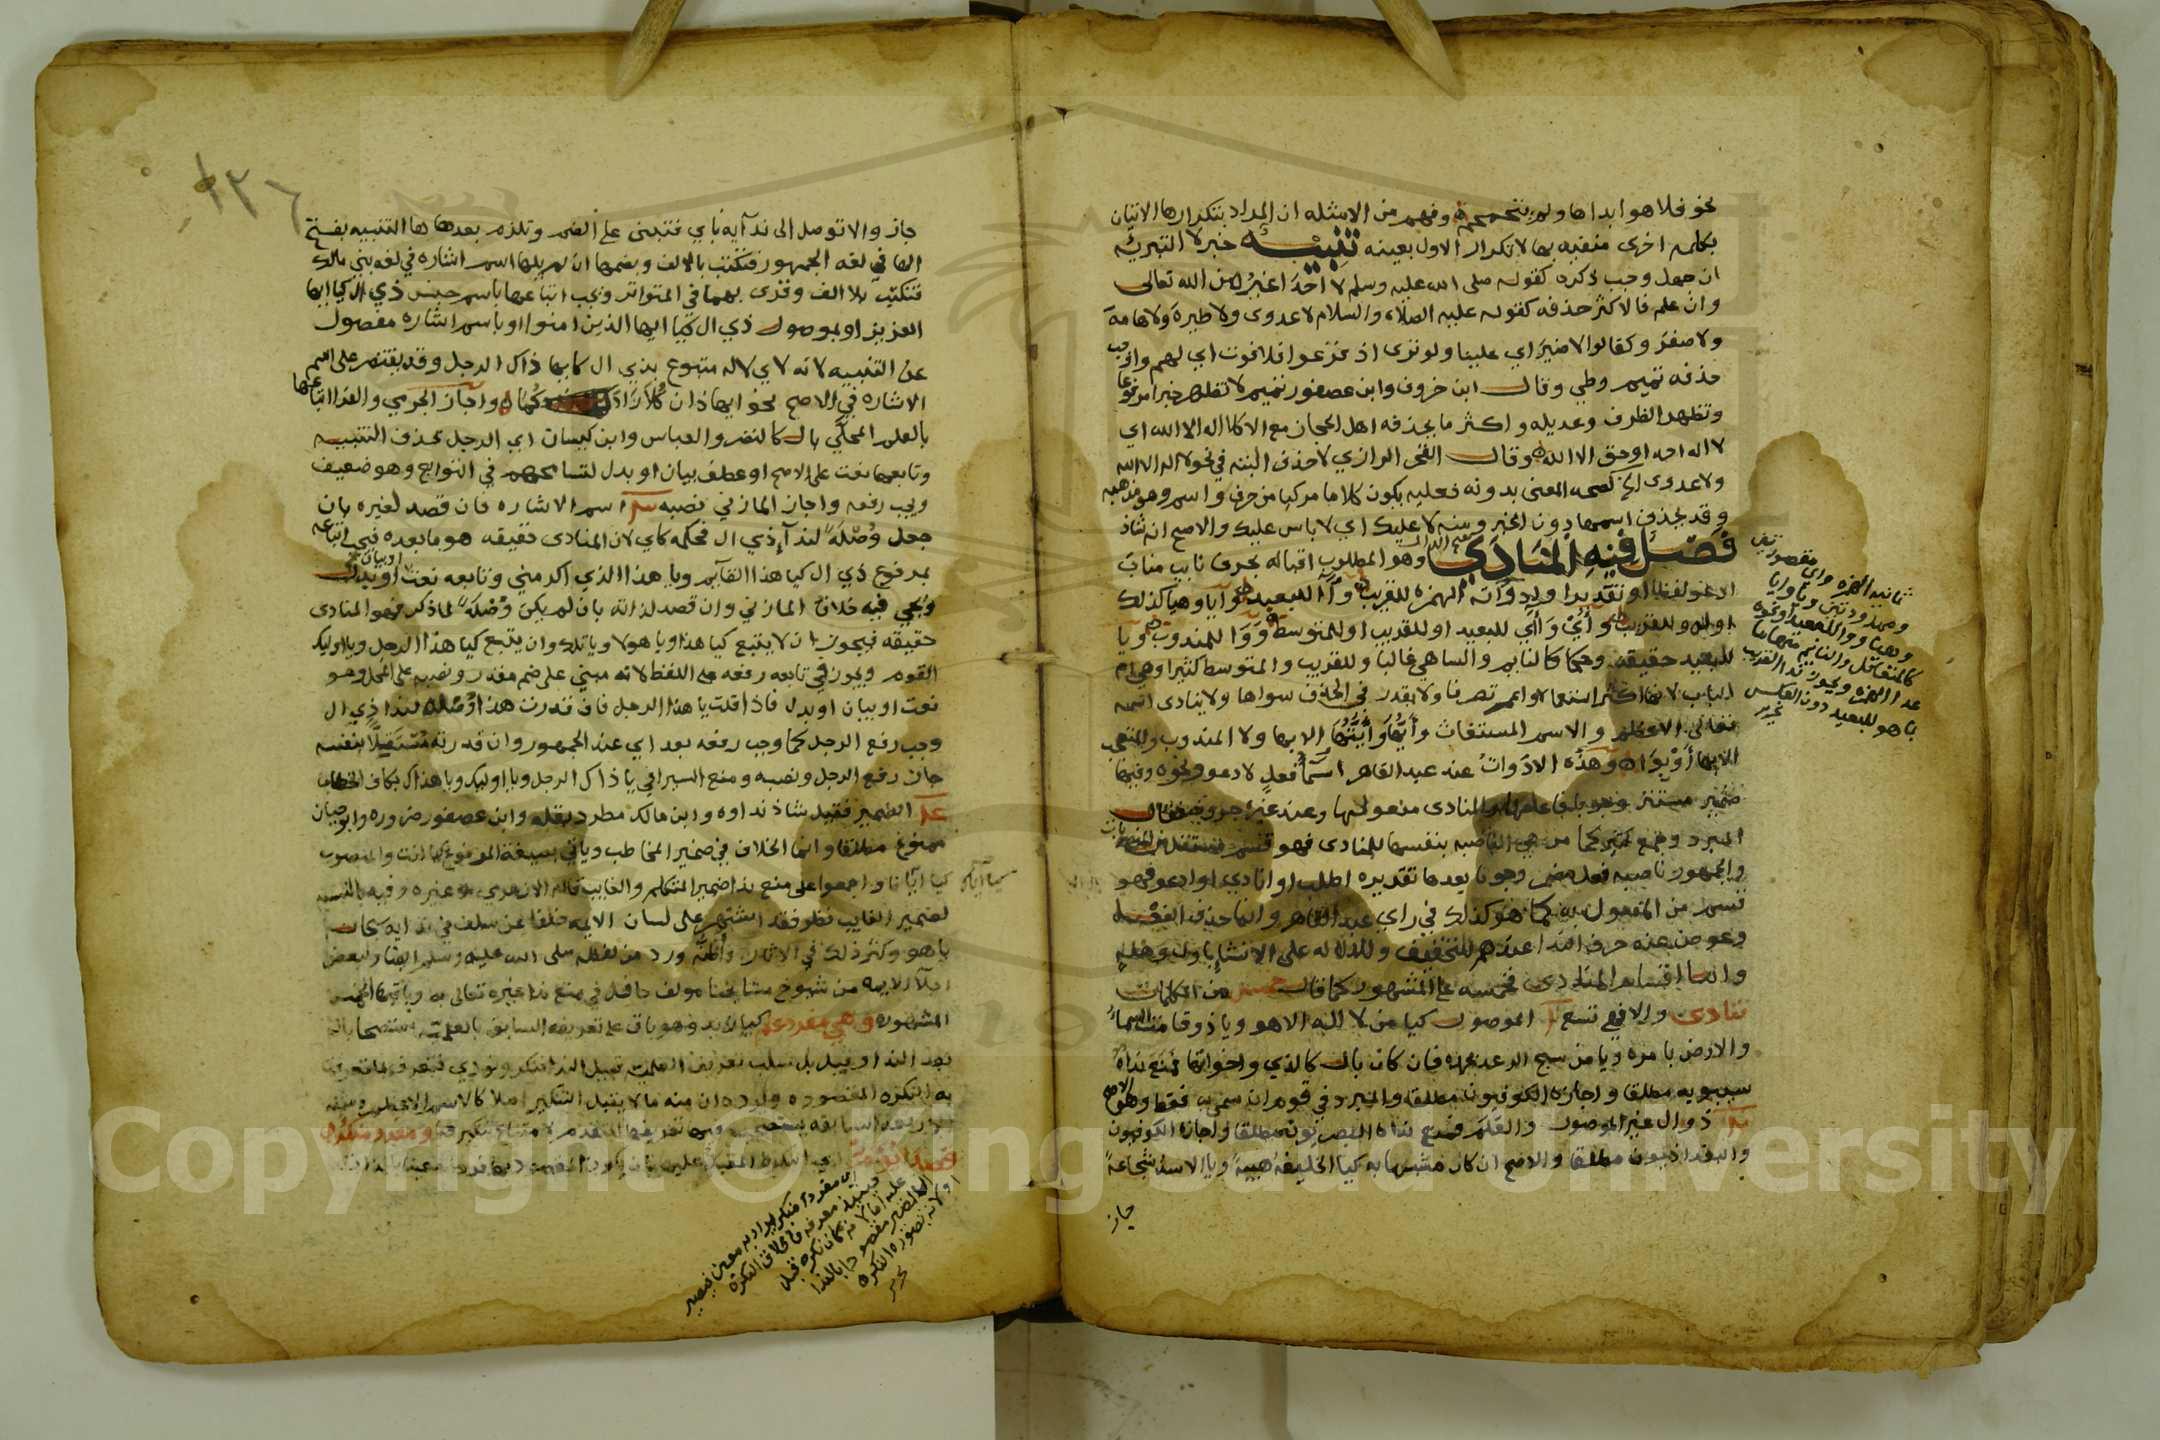 نحو فلا هو ابداها ولم وفهم من الامثله ان المراد بتكرارها الاتيان
بكلمه اخرى منفيه بها لا تكرار الاول بعينه تنبيه خبر لا التبرئه
ان جهل وجب ذكره كقوله صلى الله عليه وسلم لا احد اغير من الله تعالى
وان علم فالاكثر حذفه كقوله عليه الصلاه والسلام لا عدوى ولا طيرة ولا هامة
ولا صفر وكقالوا لا ضير اي علينا ولو ترى اذ فزعوا فلا فوت اي لهم واوجب
حذفه تميم وطي وقال ابن خروف وابن عصفور تميم لا تظهر خبرا مرفوعا
وتظهر الظرف وعديله واكثر ما يحذفه اهل الحجاز مع الا كلا اله الا الله اي
لا اله احد او حق الا الله وقال الفخر الرازي لا حذف البته في نحو لا اله الا الله
ولا عدوى الخ لصحه المعنى بدونه فعليه يكون كلاما مركبا من حرف واسم وهو مذهبه
وقد يحذف اسمها دون الخبر ومنه لا عليك اي لا باس عليك والاصح انه شاذ
فصل فيه المنادى وهو المطلوب اقباله بحرف نايب مناب
ادعو لفظا او تقديرا وادواته الهمزه للقريب وآ للبعيد وايا وهيا كذلك
او له وللقريب واي وآي للبعيد او للقريب او للمتوسط ووا للمندوب ويا
للبعيد حقيقه وحكما كالنايم والساهي غالبا وللقريب والمتوسط كثيرا وهي ام
الباب لانها اكثر استعمالا واعم تصرفا ولا يقدر في الحذف سواها ولا ينادى اسمه
تعالى الاعظم والاسم المستغاث وايها وايتها الا بها ولا المندوب والمتعجب
الا بها او بوا وهذه الادوات عند عبد القاهر اسما فعل لادعو ونحوه وفيها
ضمير مستتر وهو فاعلها والمنادى مفعولها وعند غيره احرف فقال
المبرد وجمع كثير كما مر هي الناصبه بنفسها للمنادى فهو قسم مستقل من المنصوبات
والجمهور ناصبه فعل مضمر وجوبا بعدها تقديره اطلب او انادي او ادعو فهو
قسم من المفعول به كما هو كذلك في راي عبد القاهر وانما حذف الفعل
وعوض عنه حرف الندا عندهم للتخفيف وللدلاله على الانشا باول وهله
وانما اقسام المنادى خمسه على المشهور كما قال خمس من الكلمات
تنادى والافي تسع الموصول كيا من لا اله الا هو ويا ذو قامت السماء
والارض بامره ويا من سبح الرعد بحمده فان كان بال كالذي واخواتها فمنع نداه
سيبويه مطلقا واجازه الكوفيون مطلقا والمبرد في قوم ان سمي به فقط وهو الاصح
ذو ال غير الموصول والعلم فمنع نداه البصريون مطلقا واجازه الكوفيون
والبغداذيون مطلقا والاصح ان كان مشبها به كيا الخليفه هيبة ويا الاسد شجاعة
جاز
ثانيه الهمزه واي مقصورتين
وممدودتين ويا وايا
وهيا ووا للبعيد او نحوه
كالمتغافل والنايم منهما يا
عدا الهمزه ويجوز ندا القريب
بما هو للبعيد دون العكس
تحرير
١٢٦
جاز والا توصل الى ندآيه باي فتبنى على الضم وتلزم بعدها ها التنبيه بفتح
الها في لغه الجمهور فتكتب بالالف وبضمها ان لم يلها اسم اشاره في لغه بني مالك
فتكتب بلا الف وقرى بهما في المتواتر ويجب اتباعها باسم جنس ذي ال كيا ايها
العزيز او بموصول ذي ال كيا ايها الذين امنوا او باسم اشاره مفصول
عن التنبيه لانه لاي لا له متبوع بذي ال كايها ذاك الرجل وقد يقتصر على اسم
الاشاره في الاصح نحو ايهاذان كلا زادكما واجاز الجرمي والفرا اتباعها
بالعلم المحلى بال كالنضر والعباس وابن كيسان اي الرجل بحذف التنبيه
وتابعها نعت على الاصح او عطف بيان او بدل لتسامحهم في التوابع وهو ضعيف
ويجب رفعه واجاز المازني نصبه اسم الاشاره فان قصد لغيره بان
جعل وصلة لندآ ذي ال فحكمه كاي لان المنادى حقيقه هو ما بعده فيجب اتباعه
بمرفوع ذي ال كيا هذا القايم ويا هذا الذي اكرمني وتابعه نعت او بيان او بدل
ويجي فيه خلاف المازني وان قصد لذاته بان لم يكن وصلة لما ذكر فهو المنادى
حقيقه فيجوز ان لا يتبع كيا هذا ويا هولا ويا تلك وان يتبع كيا هذا الرجل ويا اوليك
القوم ويجوز في تابعه رفعه على اللفظ لانه مبني على ضم مقدر ونصبه على المحل وهو
نعت او بيان او بدل فاذا قلت يا هذا الرجل فان قدرت هذا وصلة لندا ذي ال
وجب رفع الرجل كما وجب رفعه بعد اي عند الجمهور وان قدرته مستقلا بنفسه
جاز رفع الرجل ونصبه ومنع السيرافي يا ذاك الرجل ويا اوليك ويا هذاك بكاف الخطاب
الضمير فقيل شاذ نداوه وابن مالك مطرد بقله وابن عصفور ضروره وابو حيان
ممنوع مطلقا وانما الخلاف في ضمير المخاطب وياتي بصيغة المرفوع كيا انت والمنصوب
كيا اياك واجمعوا على منع ندا ضمير المتكلم والغايب قاله الازهري وغيره وفيه بالنسبه
لضمير الغايب نظر فقد اشتهر على لسان الايمه خلفا عن سلف في ندايه سبحانه
يا هو وكثر ذلك في الاشعار واظنه ورد من لفظه صلى الله عليه وسلم ايضا ولبعض
اجلآ الايمه من شيوخ مشايخنا مولف حافل في منع ندا غيره تعالى به وباقيها الخمس
المشهوره وهي مفرد علم كيا زيد وهو باق على تعريفه السابق بالعلميه مستصحبا
بعد الندا وقيل بل سلب تعريف العلميه قبيل الندا فنكر ونودي فتعرف بما تعرفت
به النكره المقصوده ورد بان منه ما لا يقبل التنكير اصلا كالاسم الاعظم
ومفرد منكر
قصدا
اي مفردا منكرا يراد به معين فيصير